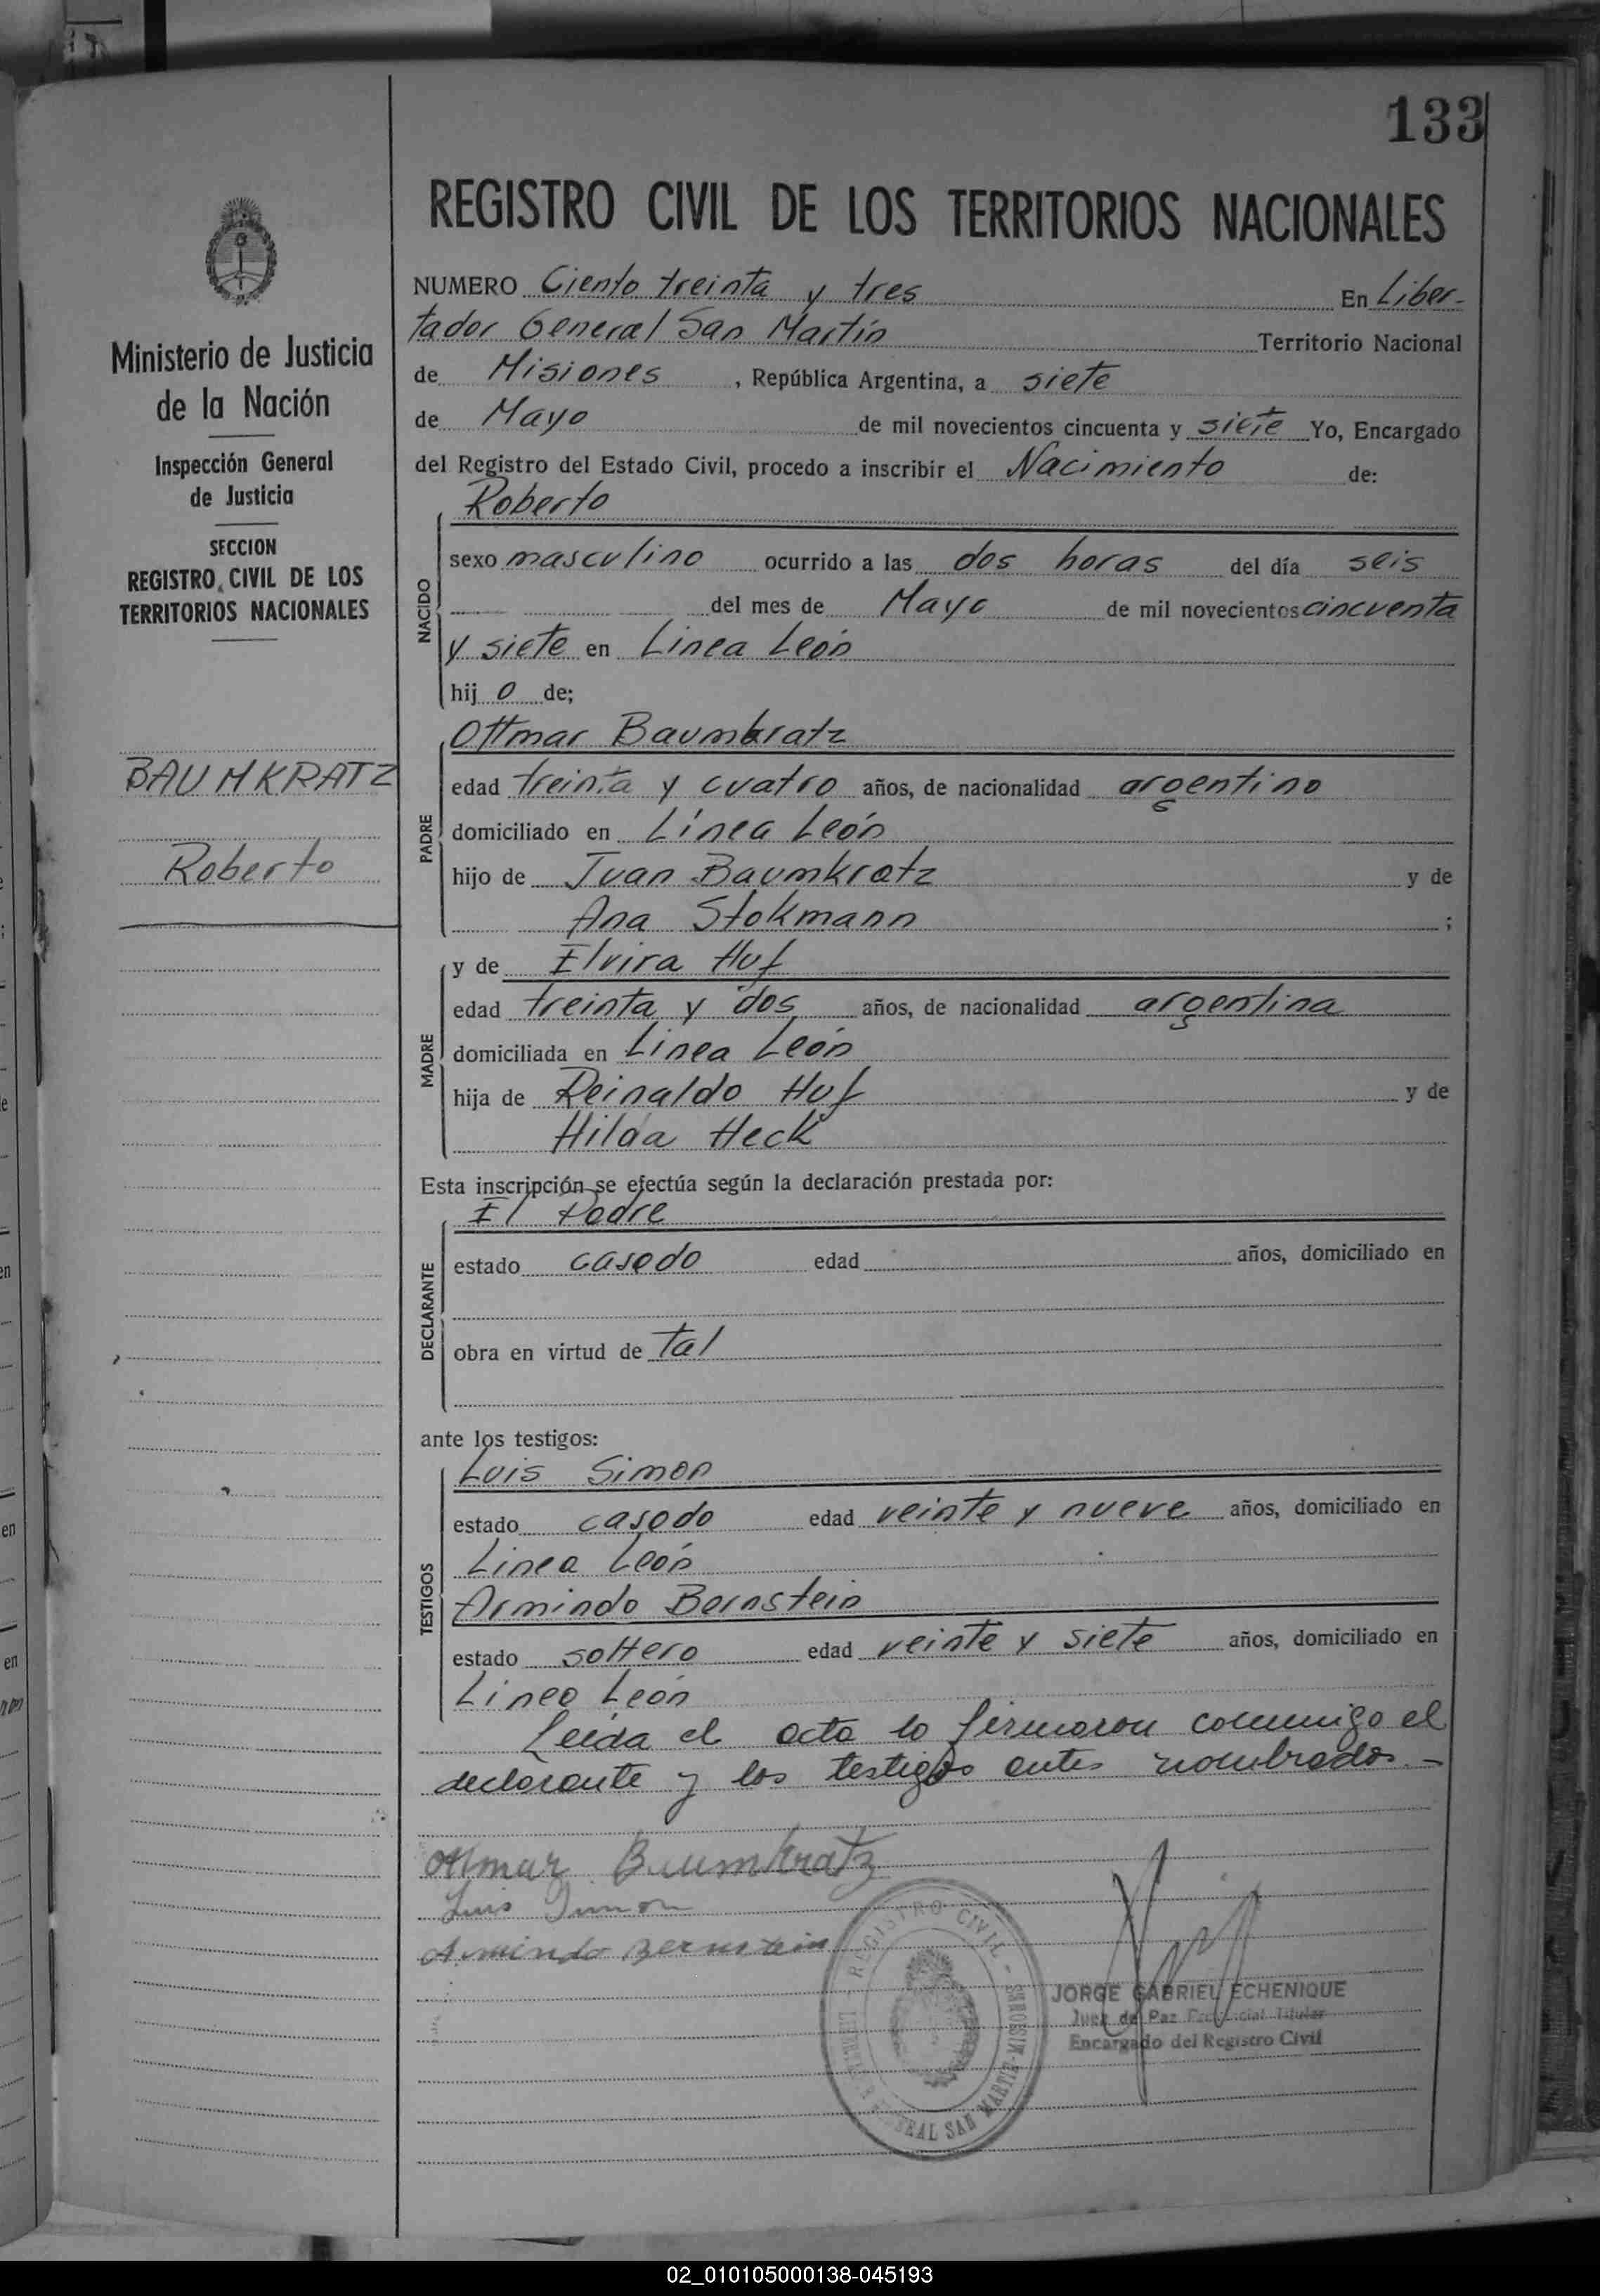 133
Ministerio de Justicia
de la Nación
Inspección General
de Justicia
SECCION
REGISTRO CIVIL DE LOS
TERRITORIOS NACIONALES
BAUMKRATZ
Roberto
REGISTRO CIVIL DE LOS TERRITORIOS NACIONALES
NUMERO Ciento treinta y tres En Liber-
tador General San Martín Territorio Nacional
de Misiones , República Argentina, a siete
de Mayo de mil novecientos cincuenta y siete Yo, Encargado
del Registro del Estado Civil, procedo a inscribir el Nacimiento de:
NACIDO
Roberto
sexo masculino ocurrido a las dos horas del día seis
del mes de Mayo de mil novecientos cincuenta
y siete en Linea León
hij o de;
PADRE
Ottmar Baumkratz
edad treinta y cuatro años, de nacionalidad argentino
domiciliado en Línea León
hijo de Juan Baumkratz y de
Ana Stokmann ;
MADRE
y de Elvira Huf
edad treinta y dos años, de nacionalidad argentina
domiciliada en Linea León
hija de Reinaldo Huf y de
Hilda Heck
Esta inscripción se efectúa según la declaración prestada por:
DECLARANTE
El Padre
estado casado edad años, domiciliado en
obra en virtud de tal
ante los testigos:
TESTIGOS
Luis Simon
estado casado edad veinte y nueve años, domiciliado en
Linea León
Armindo Bernstein
estado soltero edad veinte y siete años, domiciliado en
Linea León
Leida el acta la firmaron conmigo el
declarante y los testigos antes nombrados.-
Ottmar Baumkratz
Luis Simon
Armindo Bernstein
REGISTRO CIVIL - MISIONES
GENERAL SAN MARTIN
JORGE GABRIEL ECHENIQUE
Juez de Paz Titular
Encargado del Registro Civil
02_010105000138-045193